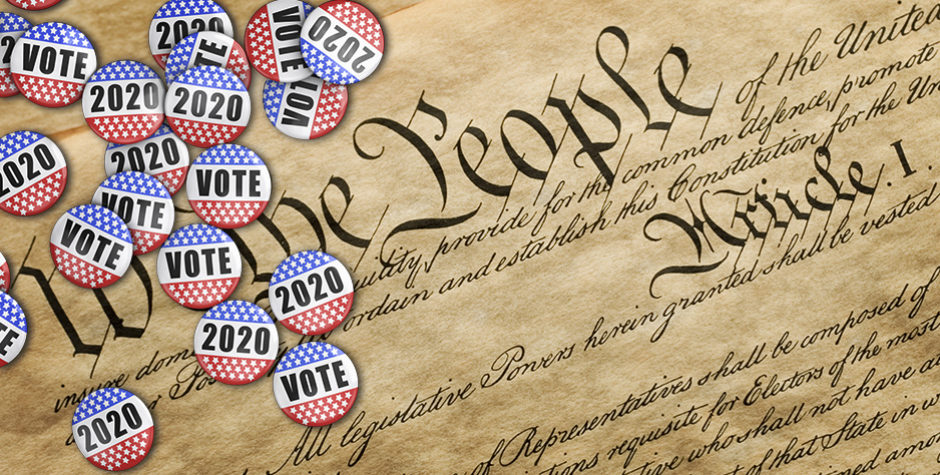 2020
VOTE
2020
VOTE
VOTE
2020
2020
VOTE
2020
2020
VOTE
VOTE
VOTE
VOTE
2020
2020
VOTE
2020
We the People of the United
insure dom uility, provide for the common defence, promote
ordain and establish this Constitution for the Un
Article . I .
All legislative Powers herein granted shall be vested
of Representatives shall be composed of
requisite for Electors of the most
who shall not have
of that State in